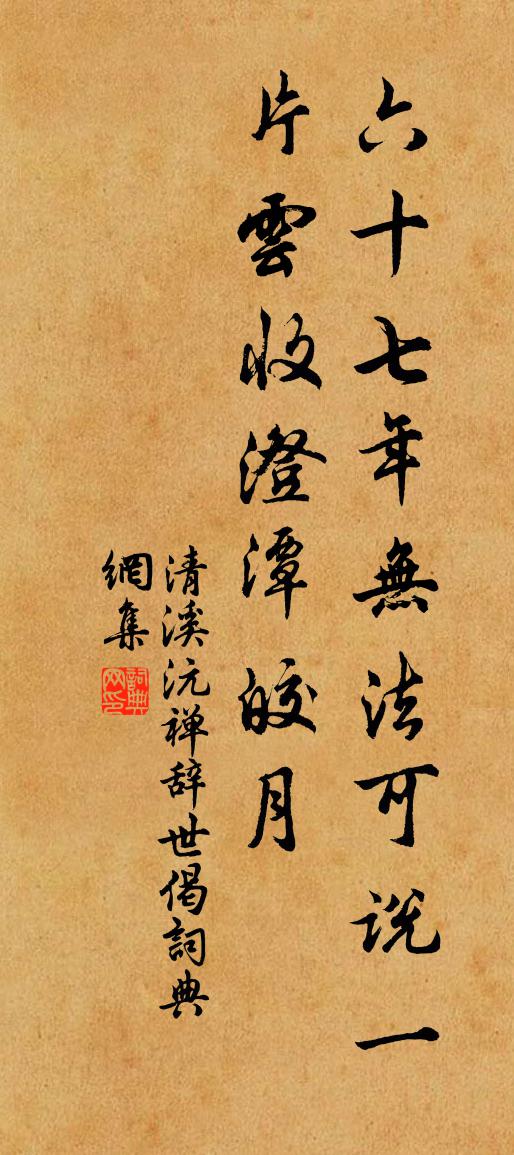 六十七年無法可説一
片雲收澄潭皎月
清溪沅禅辞世偈詞典
網集
詞典
网印